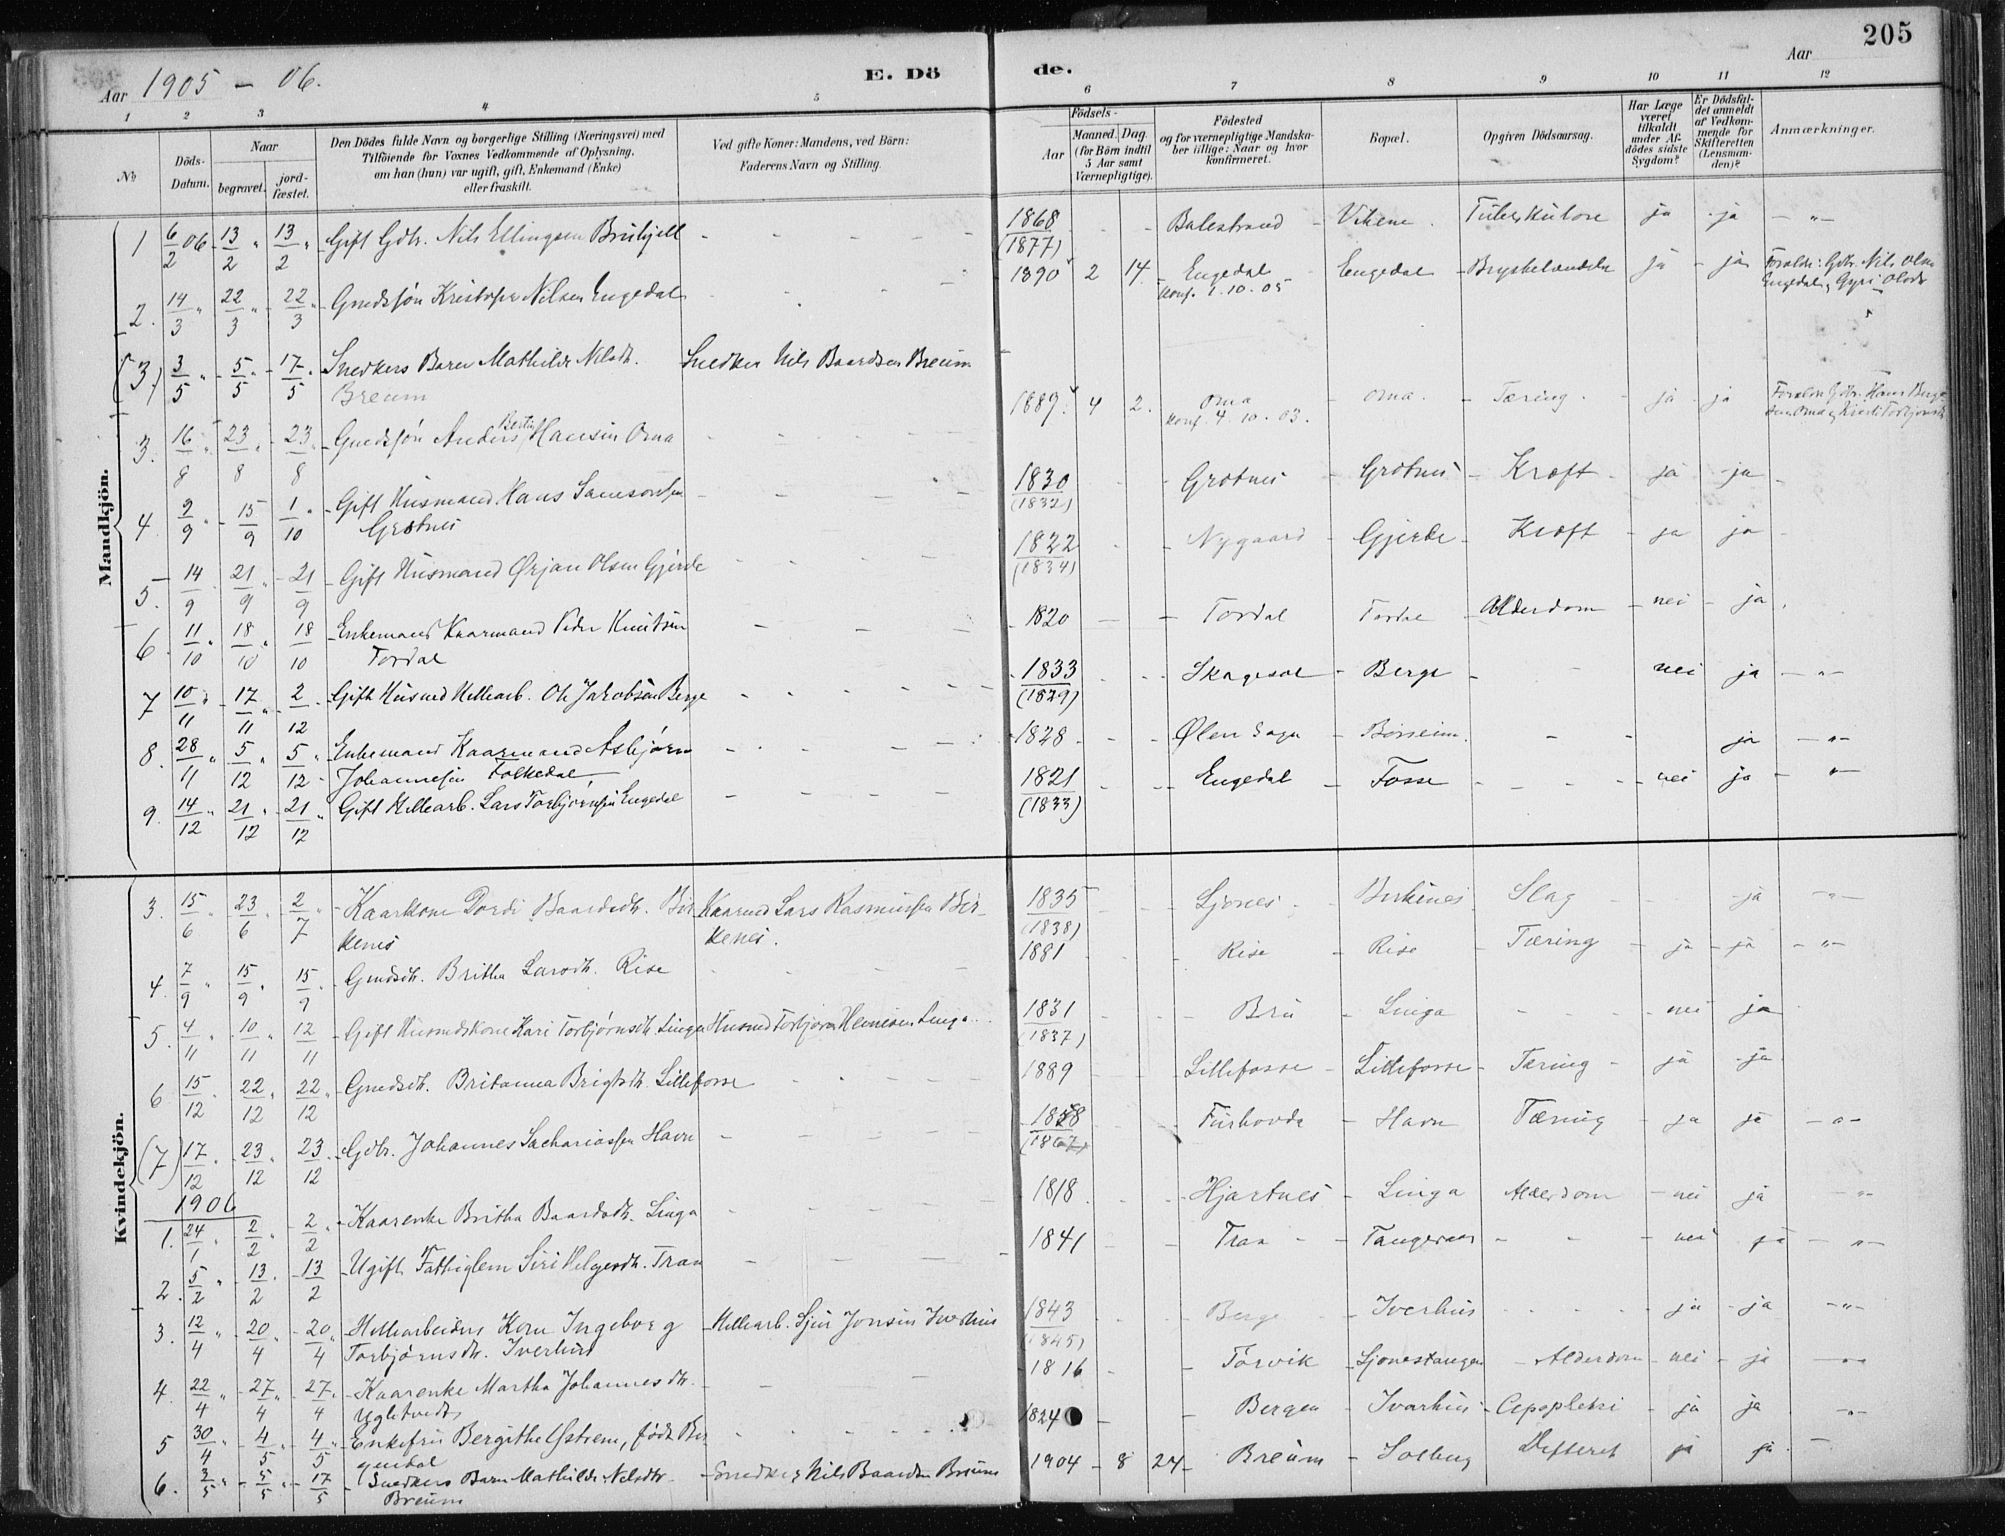 205
Aar 1905 - 06.
E. Dö de.
Aar
1 2 3 4 5 6 7 8 9 10 11 12
No
Döds-Datum.
Naar
begravet.
jord-fæstet.
Den Dödes fulde Navn og borgerlige Stilling (Næringsvei) med
Tilföiende for Voxnes Vedkommende af Oplysning,
om han (hun) var ugift, gift, Enkemand (Enke)
eller fraskilt.
Ved gifte Koner: Mandens, ved Börn:
Faderens Navn og Stilling.
Födsels-
Aar
Maaned. Dag.
(for Börn indtil
5 Aar samt
Værnepligtige).
Födested
og for værnepligtige Mandska-
ber tillige: Naar og hvor
konfirmeret.
Bopæl.
Opgiven Dödsaarsag.
Har Læge
været
tilkaldt
under Af-
dödes sidste
Sygdom?
Er Dödsfal-
det anmeldt
af Vedkom-
mende for
Skifteretten
(Lensman-
den)?
Anmærkninger.
Mandkjön.
1 6/2 06 13/2 " 13/2 " Gift Gdbr. Nils Ellingsen Bruhjell 1868 (1877) Balestrand Vikene Tuberkulose ja ja "
2. 14/3 " 22/3 " 22/3 " Gmdssön Kristofer Nilsen Engedal 1890 2 14 Engedal Konf. 1.10.05 Engedal ja ja Foraldr: Gdbr. Nils Olsn Engedal og Gyri Olsdr
(3.) 3/5 " 5/5 " 17/5 " Snedkers Barn Mathilde Nilsdt. Breum Snedker Nils Baardsen Breum
3. 16/8 " 23/8 23/8 Gmdssön Anders Bertin Hansen Oma 1889 4 2. Oma Konf. 4.10.03. Oma Tæring ja ja
4. 9/9 " 15/9 1/10 " Gift Husmand Hans Samsonsen Grotnes 1830 (1832) Grotnes Grotnes Kræft ja ja
5. 14/9 21/9 " 21/9 Gift Husmand Ørjan Olsen Gjerde 1822 (1834) Nygaard Gjerde Kræft ja ja
6. 11/10 " 18/10 " 18/10 Enkemand Kaarmand Peder Knutsen Tordal 1820 Tordal Tordal Alderdom nei ja
7 10/11 " 17/11 " 2/12 Gift Husmd Hellearb. Ole Jakobsen Berge 1833 (1829) Berge nei ja "
8. 28/11 " 5/12 " 5/12 " Enkemand Kaarmand Asbjørn Johannesen Folkedal 1828 Ølen Sogn ja "
9. 14/12 " 21/12 " 21/12 " Gift Hellearb. Lars Torbjørnsen Engedal 1821 (1833) Engedal Fosse nei ja "
Kvindekjön.
3. 15/6 " 23/6 " 2/7 " Kaarkone Dordi Baardsdt. Birkenes Kaarmd Lars Rasmussen Birkenes. 1835 (1838) Ljones Birkenes Slag ja "
4. 7/9 " 15/9 " 15/9 " Gmdsdt. Britha Larsdt. Rise 1881 Rise Rise Tæring ja ja "
5. 4/11 " 10/11 " 12/11 Gift Husmdskone Kari Torbjørnsdt. Linga Husmd Torbjørn Linga 1831 (1837) Bru Linga nei ja
6 15/12 " 22/12 " 22/12 " Gmdsdt. Britanna Brigtsdt. Lillefosse 1889 Lillefosse Lillefosse Tæring ja ja
(7) 17/12 " 23/12 " 23/12 Gdbr. Johannes Sachariassen Havn 1858 (1867) Furhovde Havn Tæring ja ja "
1906
1. 24/1 " 2/2 " 2/2 " Kaarenke Britha Baardsdt. Linga 1818 Hjartnes Linga Alderdom nei ja "
2. 5/2 " 13/2 " 13/2 Ugift Fattiglem Siri Helgesdt. Traa 1841 Traa nei ja "
3. 12/4 " 20/4 " 20/4 " Hellearbeiders Kone Ingeborg Torbjørnsdt. Iverhus Hellearb. Sjur Jonsen Iverhus 1843 (1845) Berge Iverhus ja ja "
4. 22/4 " 27/4 " 27/4 Kaarenke Martha Johannesdt. Ugletvedt 1816 Torvik Ljonestangen Alderdom nei ja "
5 30/4 " 4/5 " 4/5 " Enkefru Bergithe Ystrem, født 1824 Bergen Ivarhus Apoplexi ja ja "
6. 3/5 " 5/5 " 17/5 Snedkers Barn Mathilde Nilsdtr. Breum Snedker Nils Baardsen Breum 1904 8 24 Breum Solberg Difterit ja ja